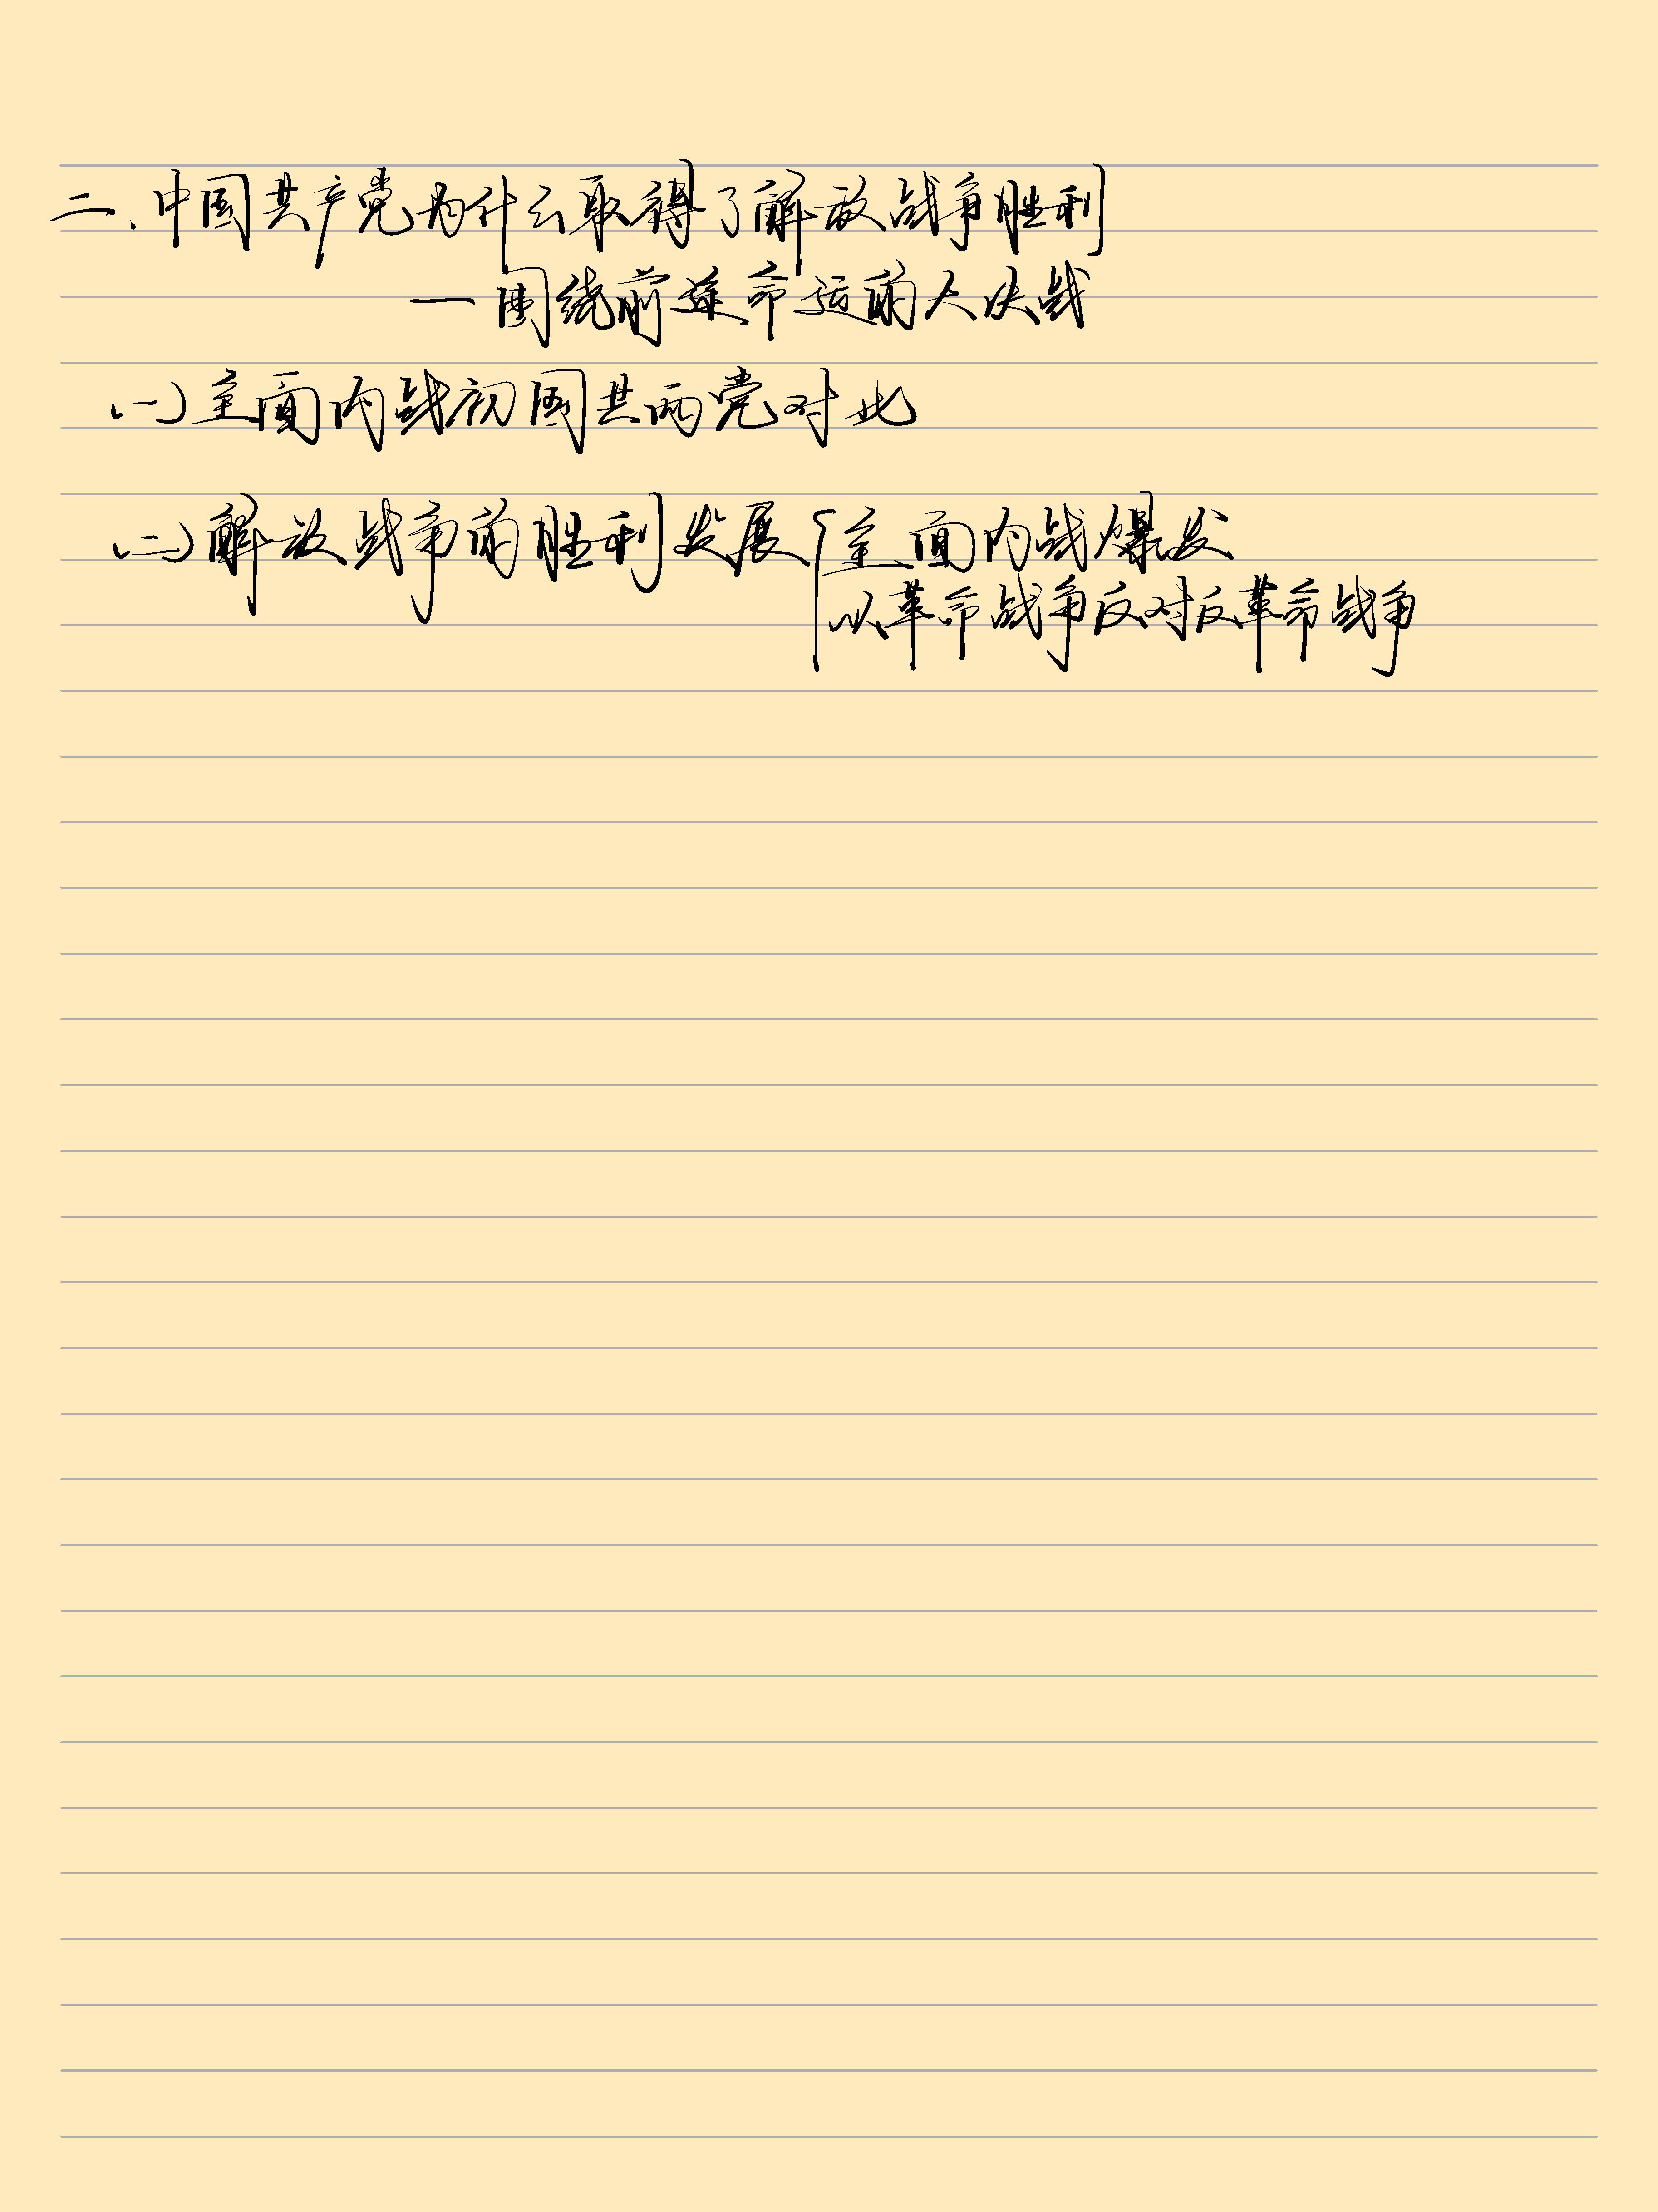 二.中国共产党为什么取得了解放战争胜利
—围绕前途命运的大决战
(一)全面内战初国共两党对比
(二)解放战争的胜利发展{全面内战爆发
以革命战争反对反革命战争